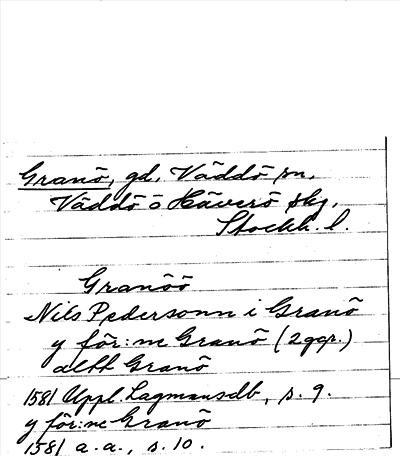 Granö, gd, Väddö sn,
Väddö o Häverö skg,
Stockh. l.
Granöö
Nils Pedersonn i Granö
y för:ne Granö (2 ggr.)
aett Granö
1581 Uppl. Lagmansdb, s. 9.
y för:ne Granö
1581 a.a., s. 10.